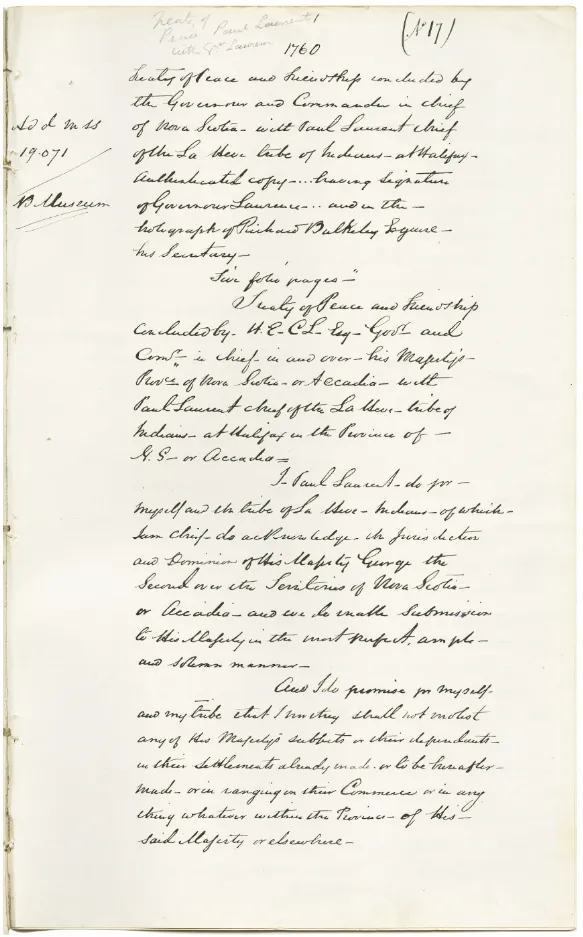 Treaty of
Peace Paul Laurent
with Gov Lawren
(No 17)
1760
Treaty of Peace and Friendship concluded by
the Governour and Commander in chief
of Nova Scotia - with Paul Laurent chief
of the La Heve tribe of Indians - at Halifax -
Authenticated copy - ... having Signature
of Governour Lawrence .. and in the -
holograph of Richard Bulkeley Esquire -
his Secretary -
Add Mss
19.071
B Museum
"Five folio pages -"
Treaty of Peace and Friendship
concluded by - H. E - C L - Esq - Govr and
Comr - in chief - in and over - his Majesty's
Provce of Nova Scotia - or Accadia - with
Paul Laurent chief of the La Heve - tribe of
Indians - at Halifax in the Province of -
N. S - or Accadia =
I - Paul Laurent - do for -
myself and the tribe of La Heve - Indians - of which -
I am Chief - do acknowledge - the Jurisdiction
and Dominion of His Majesty George the
Second over the Territories of Nova Scotia -
or Accadia - and we do make Submission
to His Majesty in the most perfect, ample -
and solemn manner -
And I do promise for myself -
and my tribe that I nor they shall not molest
any of His Majesty's subjects or their dependants -
in their settlements already made - or to be hereafter -
made - or in ranging in their Commerce or in any
thing whatever within the Province - of His -
said Majesty or elsewhere -